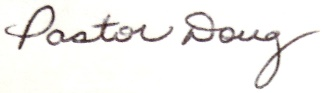 Pastor Doug